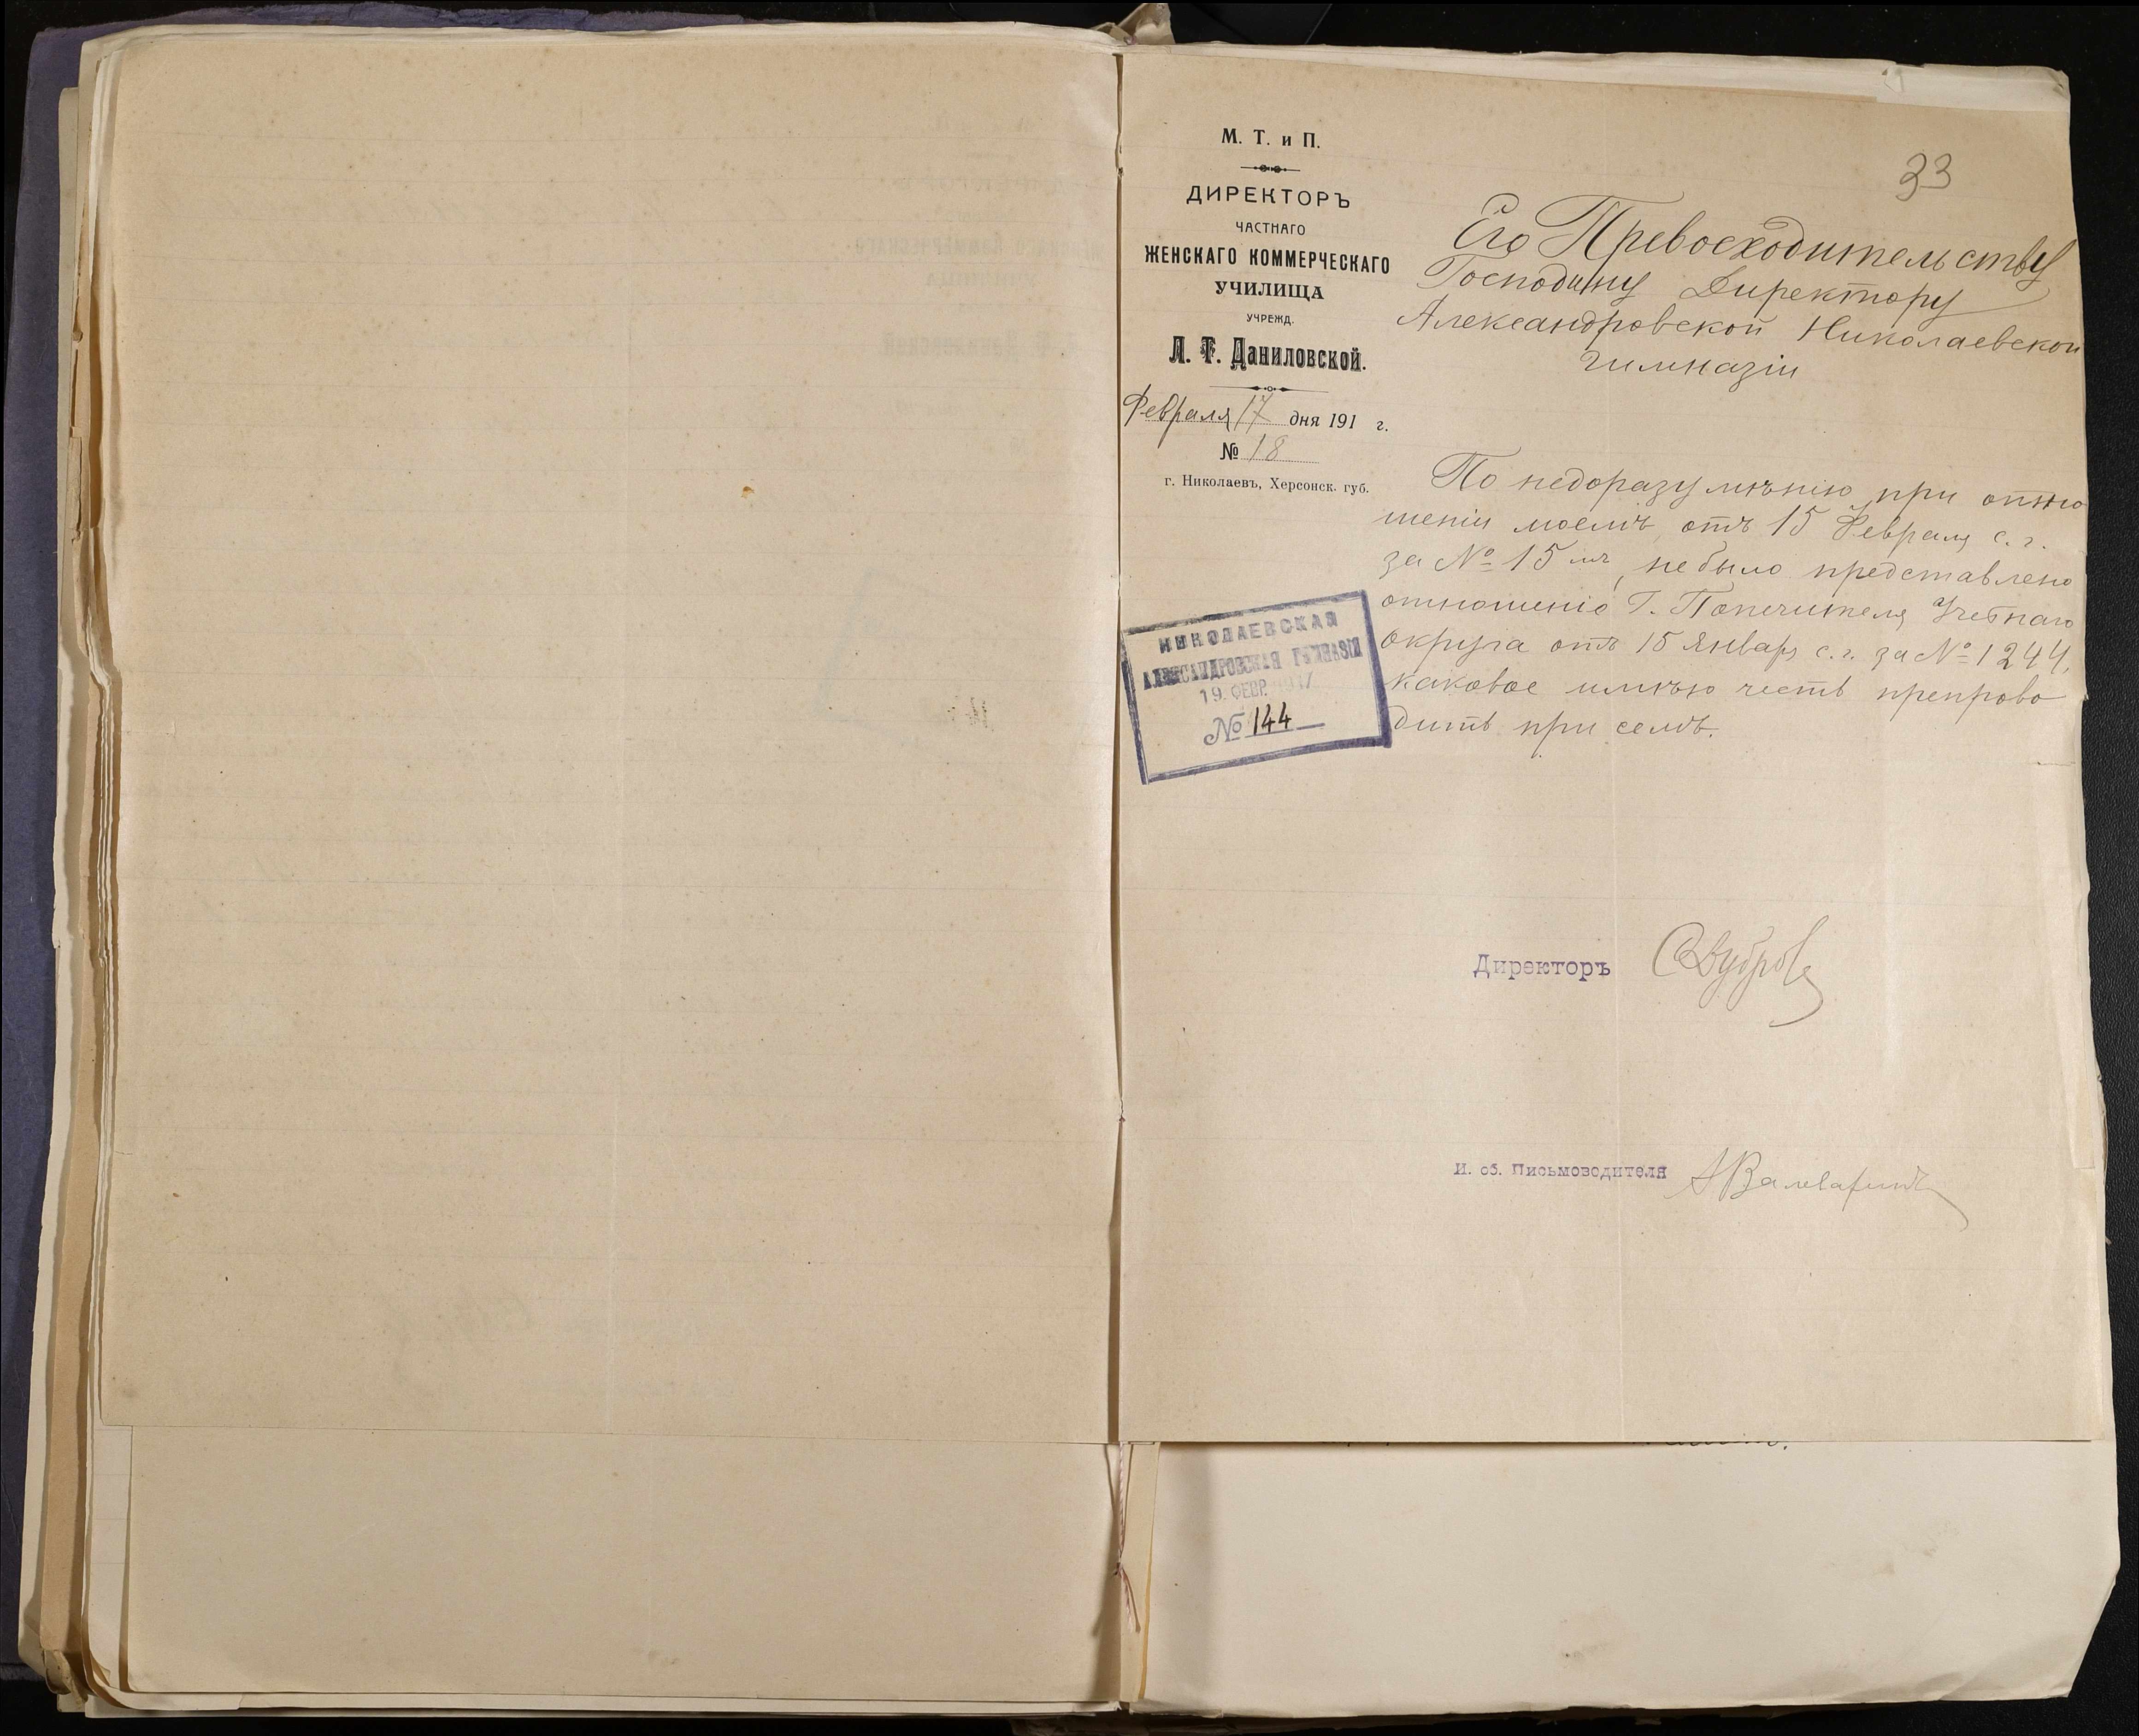 33
М. Т. и П.
ДИРЕКТОРЪ
ЧАСТНАГО
ЖЕНСКАГО КОММЕРЧЕСКАГО
УЧИЛИЩА
УЧРЕЖД.
Л. Т. Даниловской.
Февраля 17 дня 191 г.
№ 18
г. Николаевъ, Херсонск. губ.
Его Превосходительству
Господину Директору
Александровской Николаевской
Гимназіи
По недоразумѣнію при отно
шеніи моемъ отъ 15 Февраля с. г.
за № 15 мъ, не было представлено
отношеніе Г. Попечителя Учебнаго
Округа отъ 15 Января с. г. за № 1244,
каковое имѣю честь препрово
дить при семъ.
НИКОЛАЕВСКАЯ
АЛЕКСАНДРОВСКАЯ ГИМНАЗІЯ
19. ФЕВР. 1917
№ 144
Директоръ
И. об. Письмоводителя